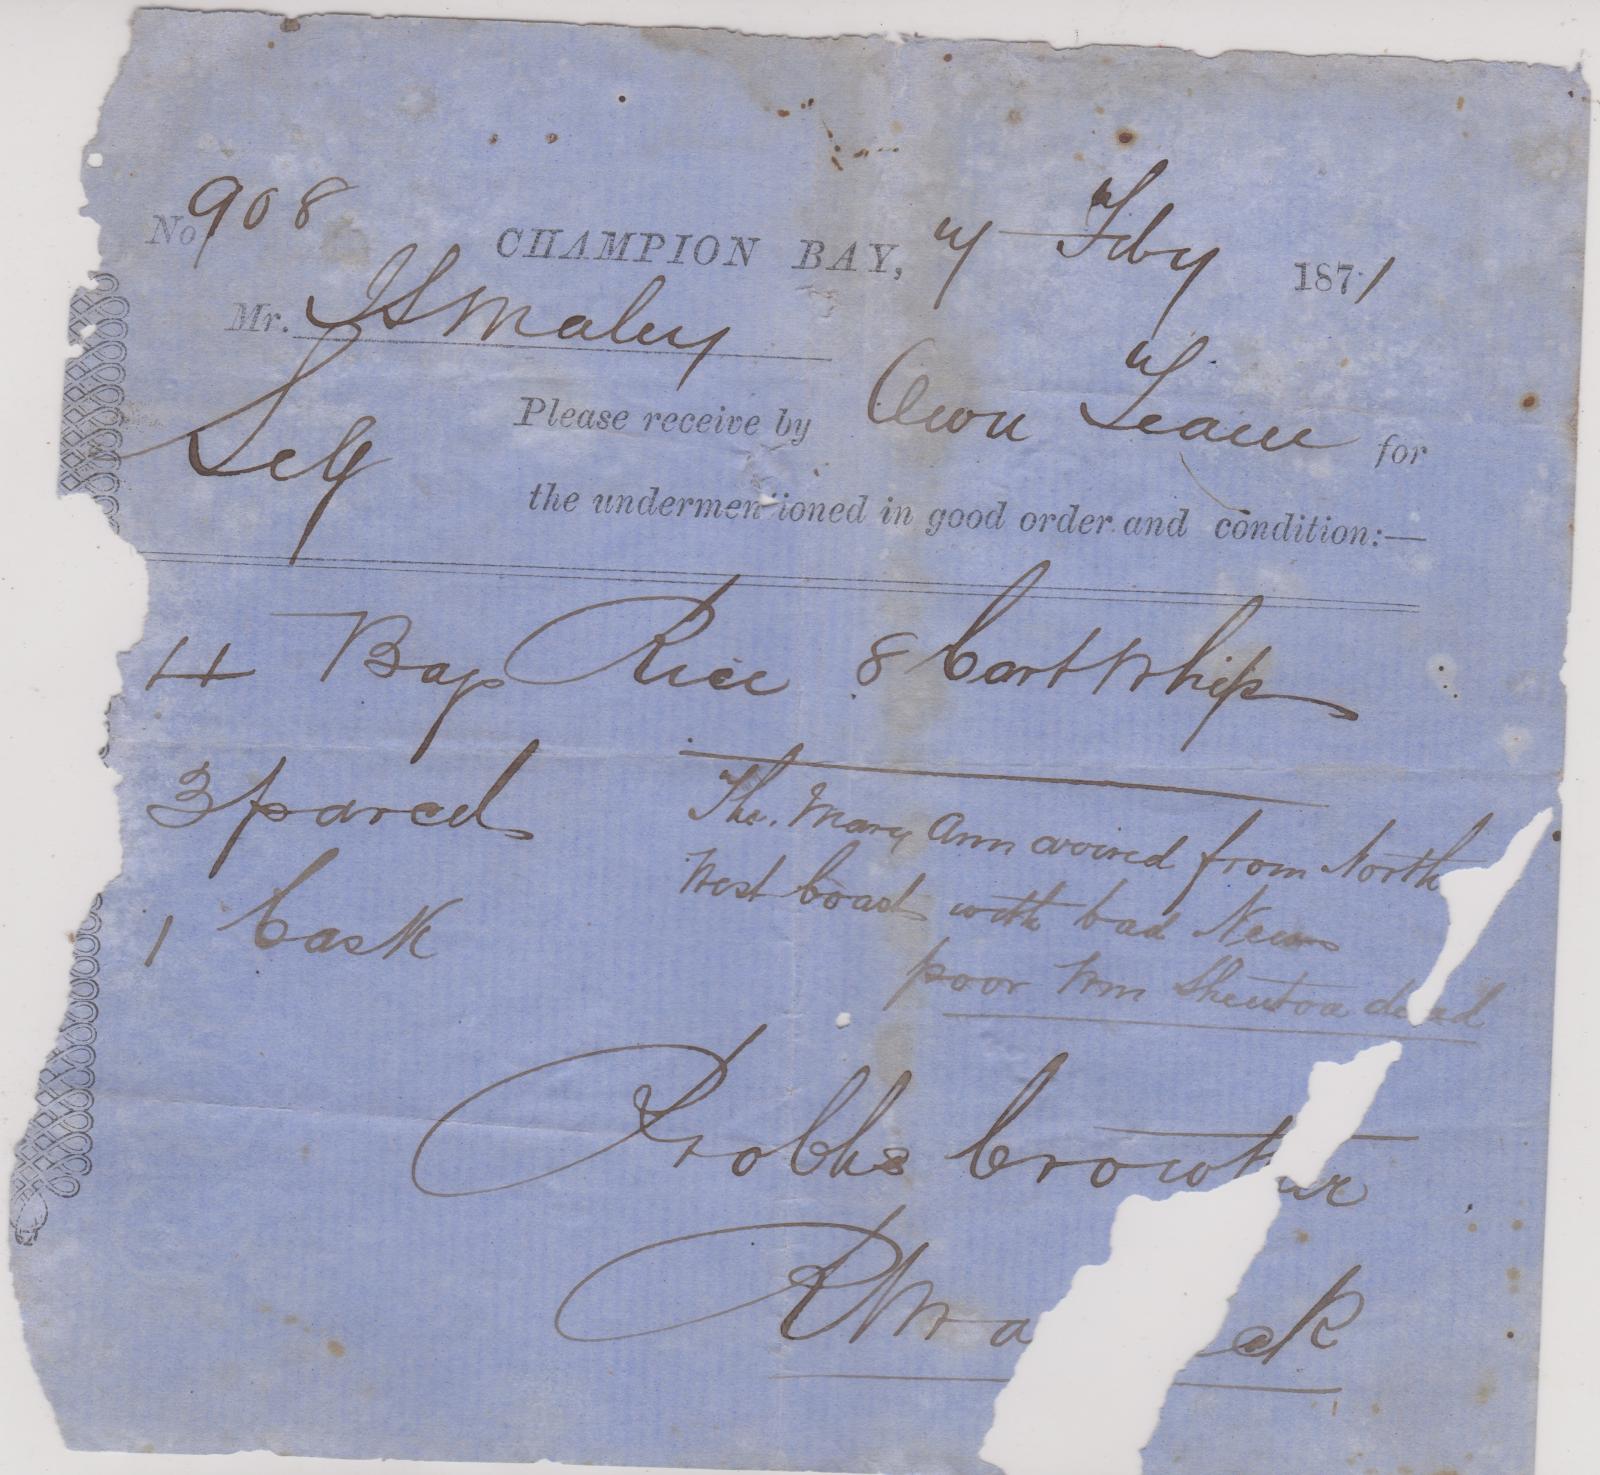 No 908
CHAMPION BAY, 7 Feby 1871
Mr. J S Maley
Please receive by Own Team for
Self
the undermentioned in good order and condition:—
4 Bags Rice 8 Cart Whips
3 parcels
1 Cask
The Mary Ann arrived from North
West Coast with bad News
poor Wm Shenton dead
Pro Crowther
R